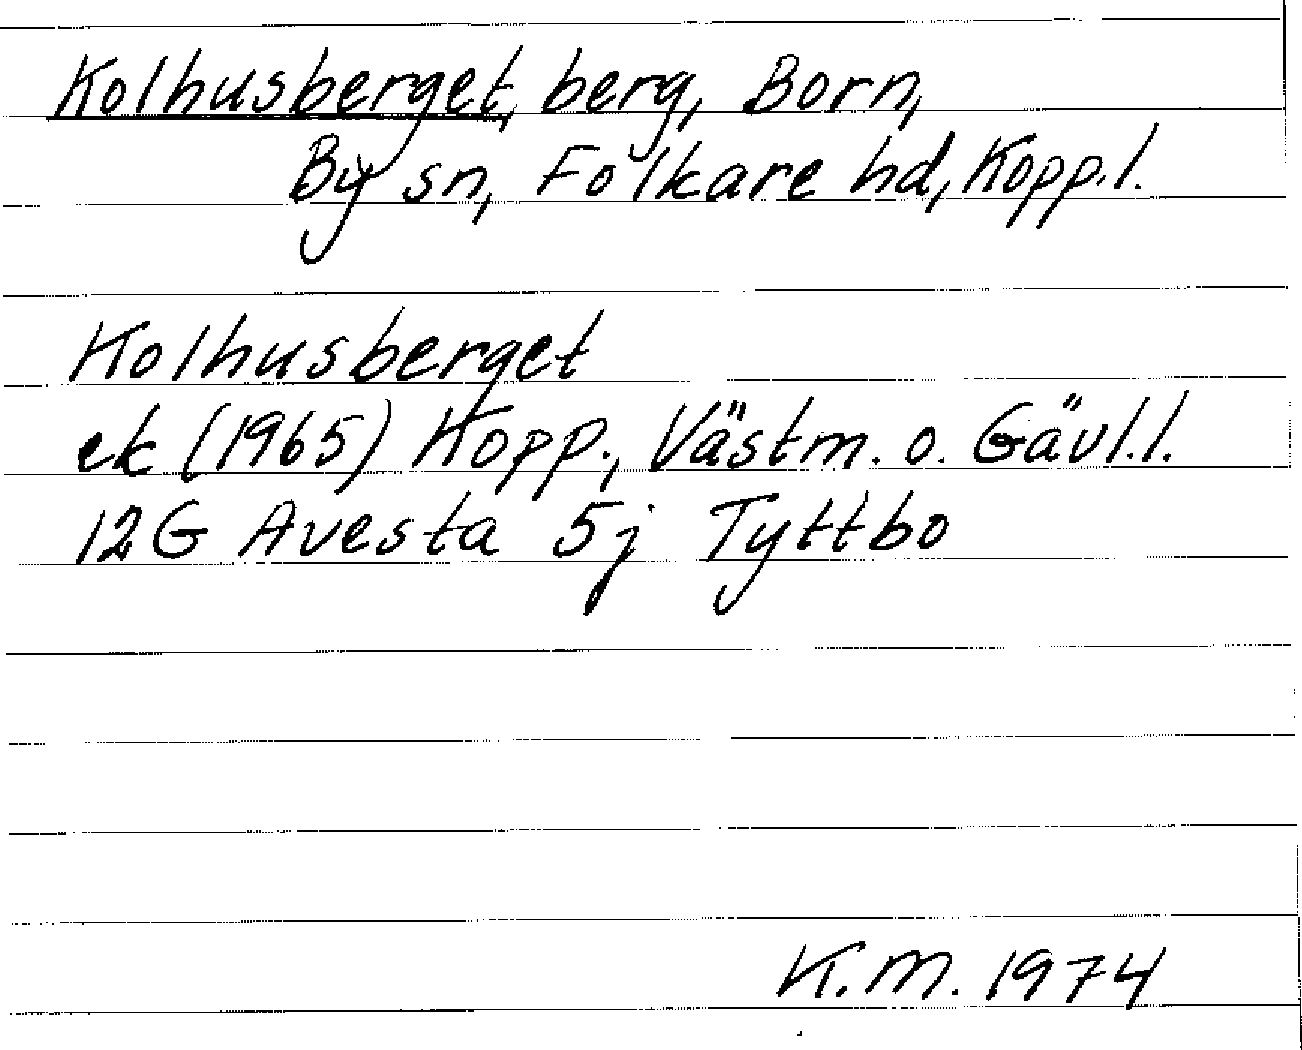 Kolhusberget, berg, Born,
By sn, Folkare hd, Kopp.l.
Kolhusberget
ek (1965) Kopp., Västm. o. Gävl.l.
12G Avesta 5j Tyttbo
K.M. 1974